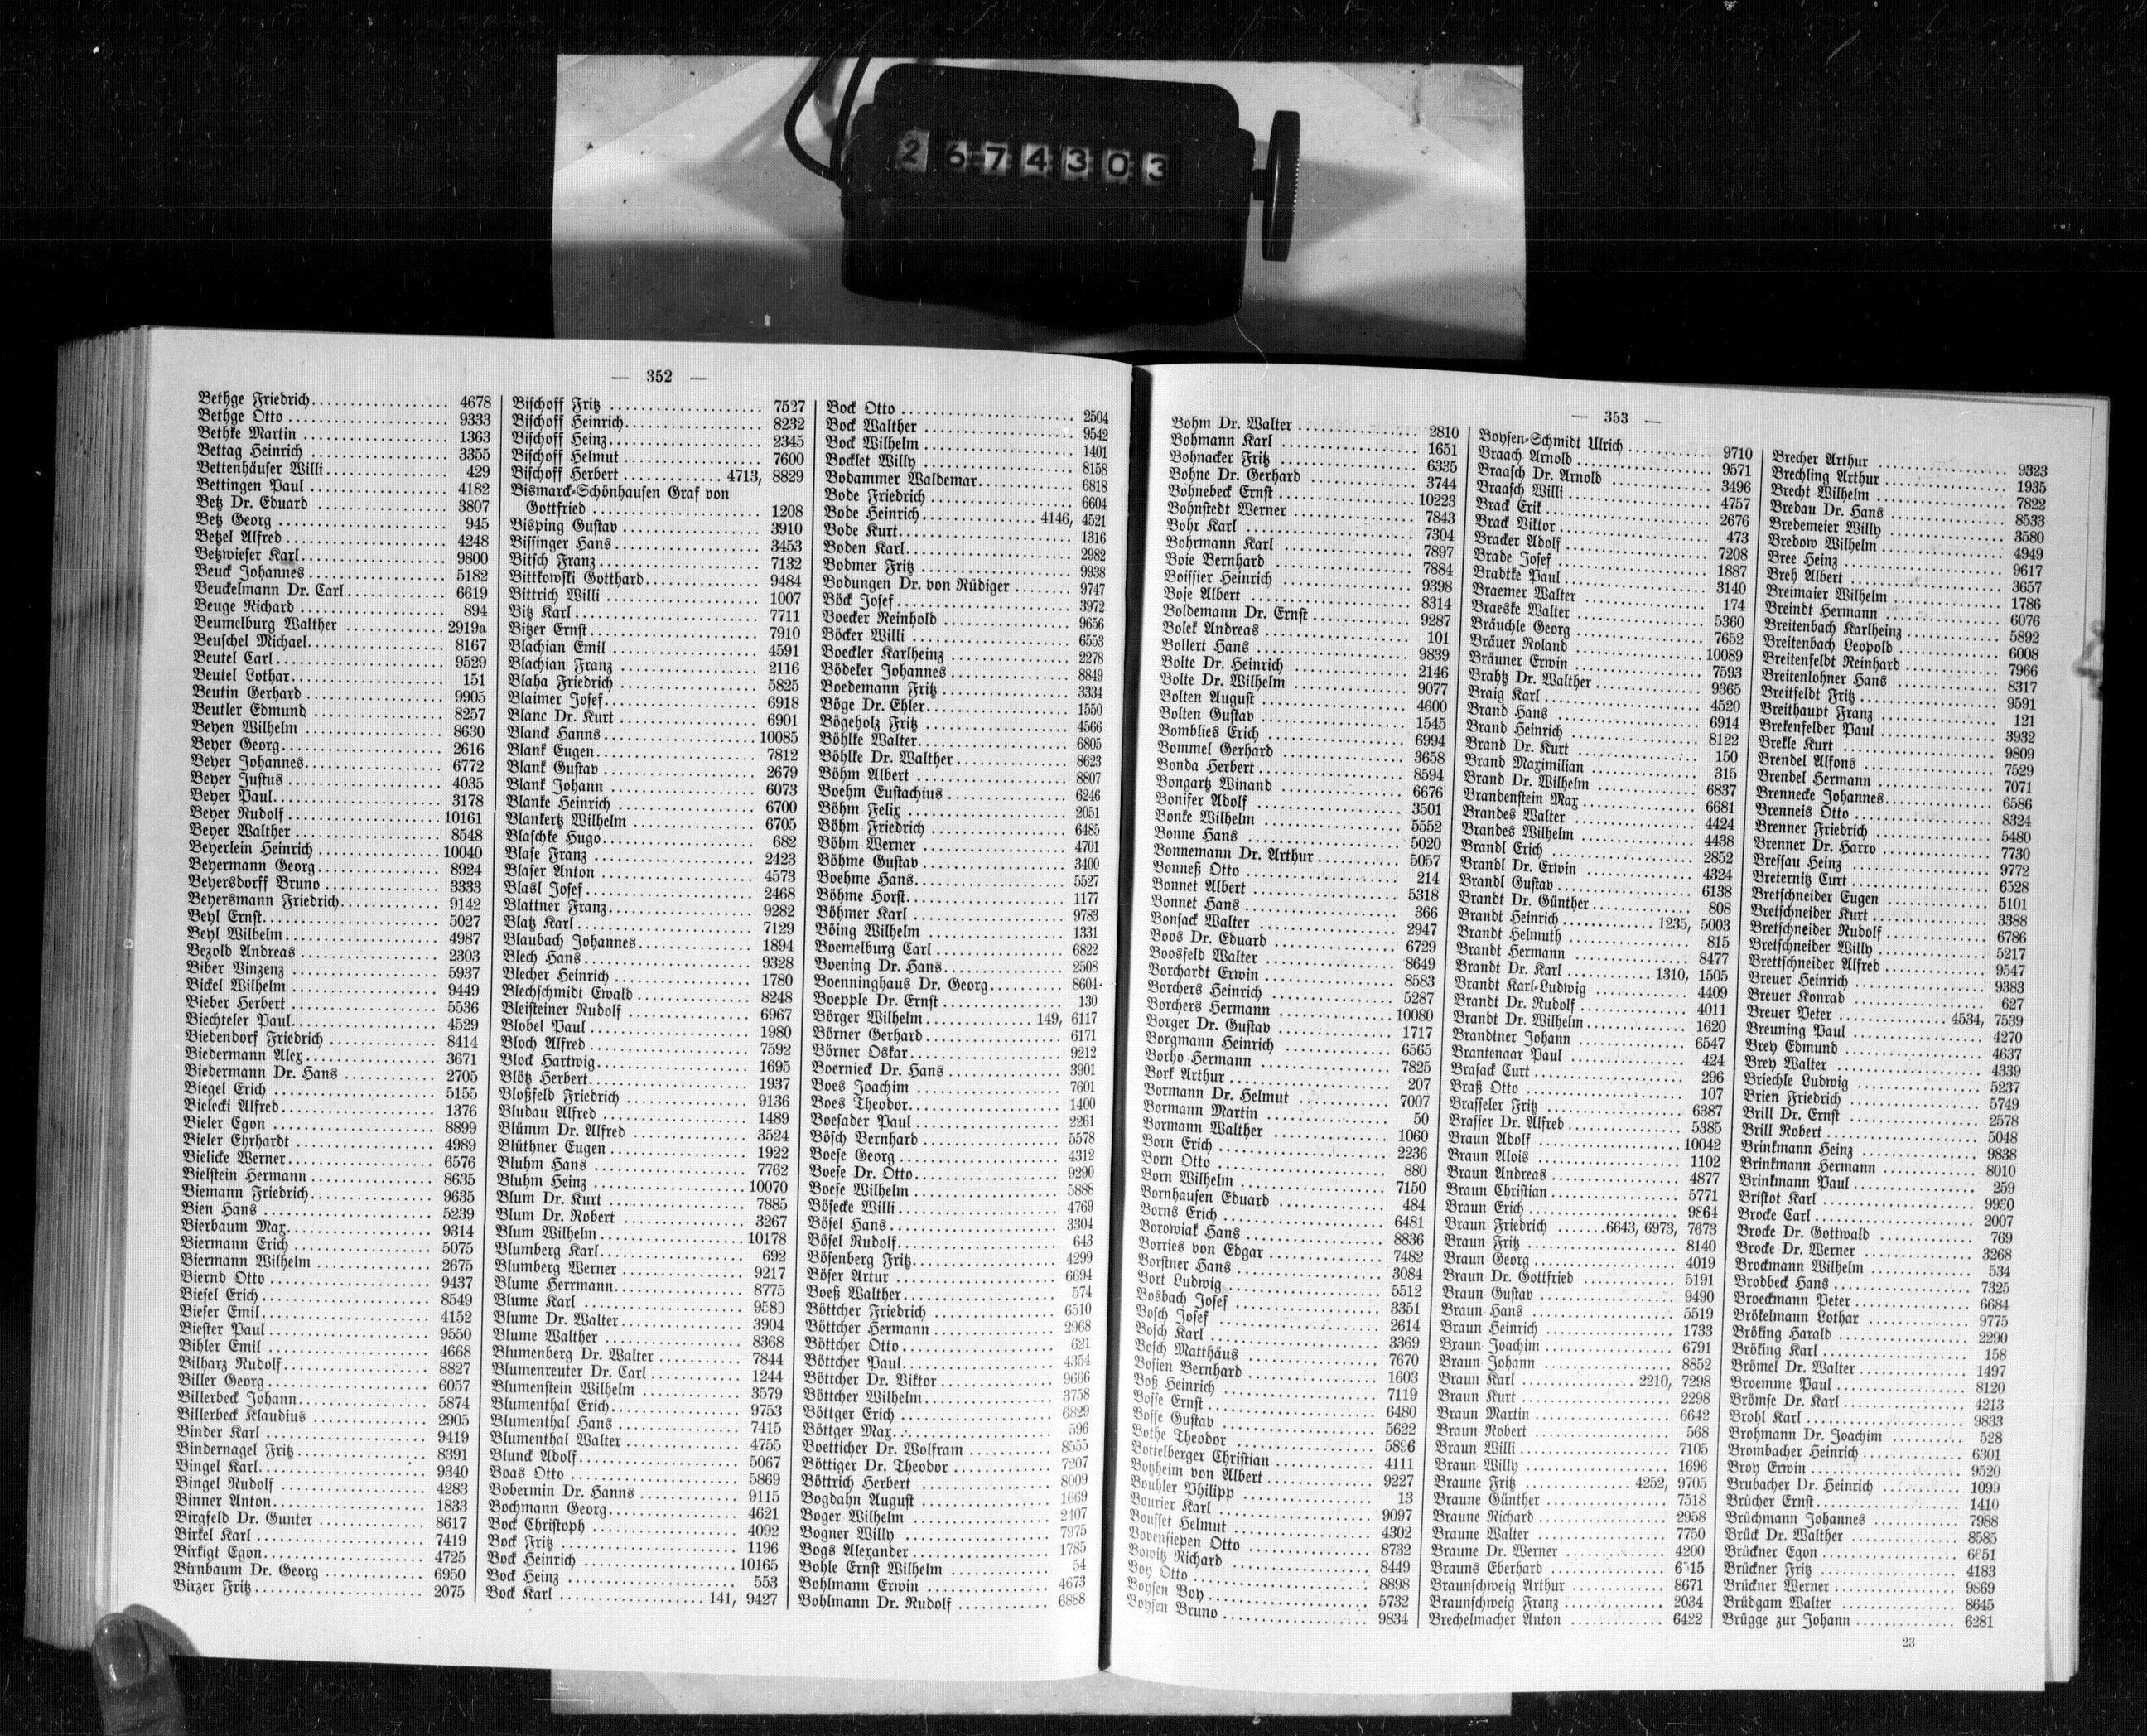 2674303
— 352 —
Bethge Friedrich 4678
Bethge Otto 9333
Bethke Martin 1363
Bettag Heinrich 3355
Bettenhäuser Willi 429
Bettingen Paul 4182
Betz Dr. Eduard 3807
Betz Georg 945
Betzel Alfred 4248
Betzwieser Karl 9800
Beuck Johannes 5182
Beuckelmann Dr. Carl 6619
Beuge Richard 894
Beumelburg Walther 2919a
Beuschel Michael 8167
Beutel Carl 9529
Beutel Lothar 151
Beutin Gerhard 9905
Beutler Edmund 8257
Beyen Wilhelm 8630
Beyer Georg 2616
Beyer Johannes 6772
Beyer Justus 4035
Beyer Paul 3178
Beyer Rudolf 10161
Beyer Walther 8548
Beyerlein Heinrich 10040
Beyermann Georg 8924
Beyersdorff Bruno 3333
Beyersmann Friedrich 9142
Beyl Ernst 5027
Beyl Wilhelm 4987
Bezold Andreas 2303
Biber Vinzenz 5937
Bickel Wilhelm 9449
Bieber Herbert 5536
Biechteler Paul 4529
Biedendorf Friedrich 8414
Biedermann Alex 3671
Biedermann Dr. Hans 2705
Biegel Erich 5155
Bielecki Alfred 1376
Bieler Egon 8899
Bieler Ehrhardt 4989
Bielicke Werner 6576
Bielstein Hermann 8635
Biemann Friedrich 9635
Bien Hans 5239
Bierbaum Max 9314
Biermann Erich 5075
Biermann Wilhelm 2675
Biernd Otto 9437
Biesel Erich 8549
Bieser Emil 4152
Biester Paul 9550
Bihler Emil 4668
Bilharz Rudolf 8827
Biller Georg 6057
Billerbeck Johann 5874
Billerbeck Klaudius 2905
Binder Karl 9419
Bindernagel Fritz 8391
Bingel Karl 9340
Bingel Rudolf 4283
Binner Anton 1833
Birgfeld Dr. Gunter 8617
Birkel Karl 7419
Birkigt Egon 4725
Birnbaum Dr. Georg 6950
Birzer Fritz 2075
Bischoff Fritz 7527
Bischoff Heinrich 8232
Bischoff Heinz 2345
Bischoff Helmut 7600
Bischoff Herbert 4713, 8829
Bismarck-Schönhausen Graf von
Gottfried 1208
Bisping Gustav 3910
Bissinger Hans 3453
Bitsch Franz 7132
Bittkowski Gotthard 9484
Bittrich Willi 1007
Bitz Karl 7711
Bitzer Ernst 7910
Blachian Emil 4591
Blachian Franz 2116
Blaha Friedrich 5825
Blaimer Josef 6918
Blanc Dr. Kurt 6901
Blanck Hanns 10085
Blank Eugen 7812
Blank Gustav 2679
Blank Johann 6073
Blanke Heinrich 6700
Blankertz Wilhelm 6705
Blaschke Hugo 682
Blase Franz 2423
Blaser Anton 4573
Blasl Josef 2468
Blattner Franz 9282
Blatz Karl 7129
Blaubach Johannes 1894
Blech Hans 9328
Blecher Heinrich 1780
Blechschmidt Ewald 8248
Bleisteiner Rudolf 6967
Blobel Paul 1980
Bloch Alfred 7592
Block Hartwig 1695
Blötz Herbert 1937
Bloßfeld Friedrich 9136
Bludau Alfred 1489
Blümm Dr. Alfred 3524
Blüthner Eugen 1922
Bluhm Hans 7762
Bluhm Heinz 10070
Blum Dr. Kurt 7885
Blum Dr. Robert 3267
Blum Wilhelm 10178
Blumberg Karl 692
Blumberg Werner 9217
Blume Herrmann 8775
Blume Karl 9580
Blume Dr. Walter 3904
Blume Walther 8368
Blumenberg Dr. Walter 7844
Blumenreuter Dr. Carl 1244
Blumenstein Wilhelm 3579
Blumenthal Erich 9753
Blumenthal Hans 7415
Blumenthal Walter 4755
Blunck Adolf 5067
Boas Otto 5869
Bobermin Dr. Hanns 9115
Bochmann Georg 4621
Bock Christoph 4092
Bock Fritz 1196
Bock Heinrich 10165
Bock Heinz 553
Bock Karl 141, 9427
Bock Otto 2504
Bock Walther 9542
Bock Wilhelm 1401
Bocklet Willy 8158
Bodammer Waldemar 6818
Bode Friedrich 6604
Bode Heinrich 4146, 4521
Bode Kurt 1316
Boden Karl 2982
Bodmer Fritz 9938
Bodungen Dr. von Rüdiger 9747
Böck Josef 3972
Boecker Reinhold 9656
Böcker Willi 6553
Boeckler Karlheinz 2278
Bödeker Johannes 8849
Boedemann Fritz 3334
Böge Dr. Ehler 1550
Bögeholz Fritz 4566
Böhlke Walter 6805
Böhlke Dr. Walther 8623
Böhm Albert 8807
Boehm Eustachius 6246
Böhm Felix 2051
Böhm Friedrich 6485
Böhm Werner 4701
Böhme Gustav 3400
Boehme Hans 5527
Böhme Horst 1177
Böhmer Karl 9783
Böing Wilhelm 1331
Boemelburg Carl 6822
Boening Dr. Hans 2508
Boenninghaus Dr. Georg 8604
Boepple Dr. Ernst 130
Börger Wilhelm 149, 6117
Börner Gerhard 6171
Börner Oskar 9212
Boernieck Dr. Hans 3901
Boes Joachim 7601
Boes Theodor 1400
Boesader Paul 2261
Bösch Bernhard 5578
Boese Georg 4312
Boese Dr. Otto 9290
Boese Wilhelm 5888
Bösecke Willi 4769
Bösel Hans 3304
Bösel Rudolf 643
Bösenberg Fritz 4299
Böser Artur 6694
Boeß Walther 574
Böttcher Friedrich 6510
Böttcher Hermann 2968
Böttcher Otto 621
Böttcher Paul 4354
Böttcher Dr. Viktor 9666
Böttcher Wilhelm 3758
Böttger Erich 6829
Böttger Max 596
Boetticher Dr. Wolfram 8555
Böttiger Dr. Theodor 7207
Böttrich Herbert 8009
Bogdahn August 1669
Boger Wilhelm 2407
Bogner Willy 7975
Bogs Alexander 1785
Bohle Ernst Wilhelm 54
Bohlmann Erwin 4673
Bohlmann Dr. Rudolf 6888
— 353 —
Bohm Dr. Walter 2810
Bohmann Karl 1651
Bohnacker Fritz 6335
Bohne Dr. Gerhard 3744
Bohnebeck Ernst 10223
Bohnstedt Werner 7843
Bohr Karl 7304
Bohrmann Karl 7897
Boie Bernhard 7884
Boissier Heinrich 9398
Boje Albert 8314
Boldemann Dr. Ernst 9287
Bolek Andreas 101
Bollert Hans 9839
Bolte Dr. Heinrich 2146
Bolte Dr. Wilhelm 9077
Bolten August 4600
Bolten Gustav 1545
Bomblies Erich 6994
Bommel Gerhard 3658
Bonda Herbert 8594
Bongartz Winand 6676
Bonifer Adolf 3501
Bonke Wilhelm 5552
Bonne Hans 5020
Bonnemann Dr. Arthur 5057
Bonneß Otto 214
Bonnet Albert 5318
Bonnet Hans 366
Bonsack Walter 2947
Boos Dr. Eduard 6729
Boosfeld Walter 8649
Borchardt Erwin 8583
Borchers Heinrich 5287
Borchers Hermann 10080
Borger Dr. Gustav 1717
Borgmann Heinrich 6565
Borho Hermann 7825
Bork Arthur 207
Bormann Dr. Helmut 7007
Bormann Martin 50
Bormann Walther 1060
Born Erich 2236
Born Otto 880
Born Wilhelm 7150
Bornhausen Eduard 484
Borns Erich 6481
Borowiak Hans 8836
Borries von Edgar 7482
Borstner Hans 3084
Bort Ludwig 5512
Bosbach Josef 3351
Bosch Josef 2614
Bosch Karl 3369
Bosch Matthäus 7670
Bosien Bernhard 1603
Boß Heinrich 7119
Bosse Ernst 6480
Bosse Gustav 5622
Bothe Theodor 5896
Bottelberger Christian 4111
Botzheim von Albert 9227
Bouhler Philipp 13
Bourier Karl 9097
Bousset Helmut 4302
Bovensiepen Otto 8732
Bowitz Richard 8449
Boy Otto 8898
Boysen Boy 5732
Boysen Bruno 9834
Boysen-Schmidt Ulrich 9710
Braach Arnold 9571
Braasch Dr. Arnold 3496
Braasch Willi 4757
Brack Erik 2676
Brack Viktor 473
Bracker Adolf 7208
Brade Josef 1887
Bradtke Paul 3140
Braemer Walter 174
Braeske Walter 5360
Bräuchle Georg 7652
Bräuer Roland 10089
Bräuner Erwin 7593
Brahtz Dr. Walther 9365
Braig Karl 4520
Brand Hans 6914
Brand Heinrich 8122
Brand Dr. Kurt 150
Brand Maximilian 315
Brand Dr. Wilhelm 6837
Brandenstein Max 6681
Brandes Walter 4424
Brandes Wilhelm 4438
Brandl Erich 2852
Brandl Dr. Erwin 4324
Brandl Gustav 6138
Brandt Dr. Günther 808
Brandt Heinrich 1235, 5003
Brandt Helmuth 815
Brandt Hermann 8477
Brandt Dr. Karl 1310, 1505
Brandt Karl-Ludwig 4409
Brandt Dr. Rudolf 4011
Brandt Dr. Wilhelm 1620
Brandtner Johann 6547
Brantenaar Paul 424
Brasack Curt 296
Braß Otto 107
Brasseler Fritz 6387
Brasser Dr. Alfred 5385
Braun Adolf 10042
Braun Alois 1102
Braun Andreas 4877
Braun Christian 5771
Braun Erich 9864
Braun Friedrich 6643, 6973, 7673
Braun Fritz 8140
Braun Georg 4019
Braun Dr. Gottfried 5191
Braun Gustav 9490
Braun Hans 5519
Braun Heinrich 1733
Braun Joachim 6791
Braun Johann 8852
Braun Karl 2210, 7298
Braun Kurt 2298
Braun Martin 6642
Braun Robert 568
Braun Willi 7105
Braun Willy 1696
Braune Fritz 4252, 9705
Braune Günther 7518
Braune Richard 2958
Braune Walter 7750
Braune Dr. Werner 4200
Brauns Eberhard
Braunschweig Arthur 8671
Braunschweig Franz 2034
Brechelmacher Anton 6422
Brecher Arthur 9323
Brechling Arthur 1935
Brecht Wilhelm 7822
Bredau Dr. Hans 8533
Bredemeier Willy 3580
Bredow Wilhelm 4949
Bree Heinz 9617
Breh Albert 3657
Breimaier Wilhelm 1786
Breindt Hermann 6076
Breitenbach Karlheinz 5892
Breitenbach Leopold 6008
Breitenfeldt Reinhard 7966
Breitenlohner Hans 8317
Breitfeldt Fritz 9591
Breithaupt Franz 121
Brekenfelder Paul 3932
Brekle Kurt 9809
Brendel Alfons 7529
Brendel Hermann 7071
Brennecke Johannes 6586
Brenneis Otto 8324
Brenner Friedrich 5480
Brenner Dr. Harro 7730
Bressau Heinz 9772
Breternitz Curt 6528
Bretschneider Eugen 5101
Bretschneider Kurt 3388
Bretschneider Rudolf 6786
Bretschneider Willy 5217
Brettschneider Alfred 9547
Breuer Heinrich 9383
Breuer Konrad 627
Breuer Peter 4534, 7539
Breuning Paul 4270
Brey Edmund 4637
Brey Walter 4339
Briechle Ludwig 5237
Brien Friedrich 5749
Brill Dr. Ernst 2578
Brill Robert 5048
Brinkmann Heinz 9838
Brinkmann Hermann 8010
Brinkmann Paul 259
Bristot Karl 9920
Brocke Carl 2007
Brocke Dr. Gottwald 769
Brocke Dr. Werner 3268
Brockmann Wilhelm 534
Brodbeck Hans 7325
Broeckmann Peter 6684
Brökelmann Lothar 9775
Bröking Harald 2290
Bröking Karl 158
Brömel Dr. Walter 1497
Broemme Paul 8120
Brömse Dr. Karl 4213
Brohl Karl 9833
Brohmann Dr. Joachim 528
Brombacher Heinrich 6301
Broy Erwin 9520
Brubacher Dr. Heinrich 1099
Brücher Ernst 1410
Brüchmann Johannes 7988
Brück Dr. Walther 8585
Brückner Egon 6651
Brückner Fritz 4183
Brückner Werner 9869
Brüdgam Walter 8645
Brügge zur Johann 6281
23